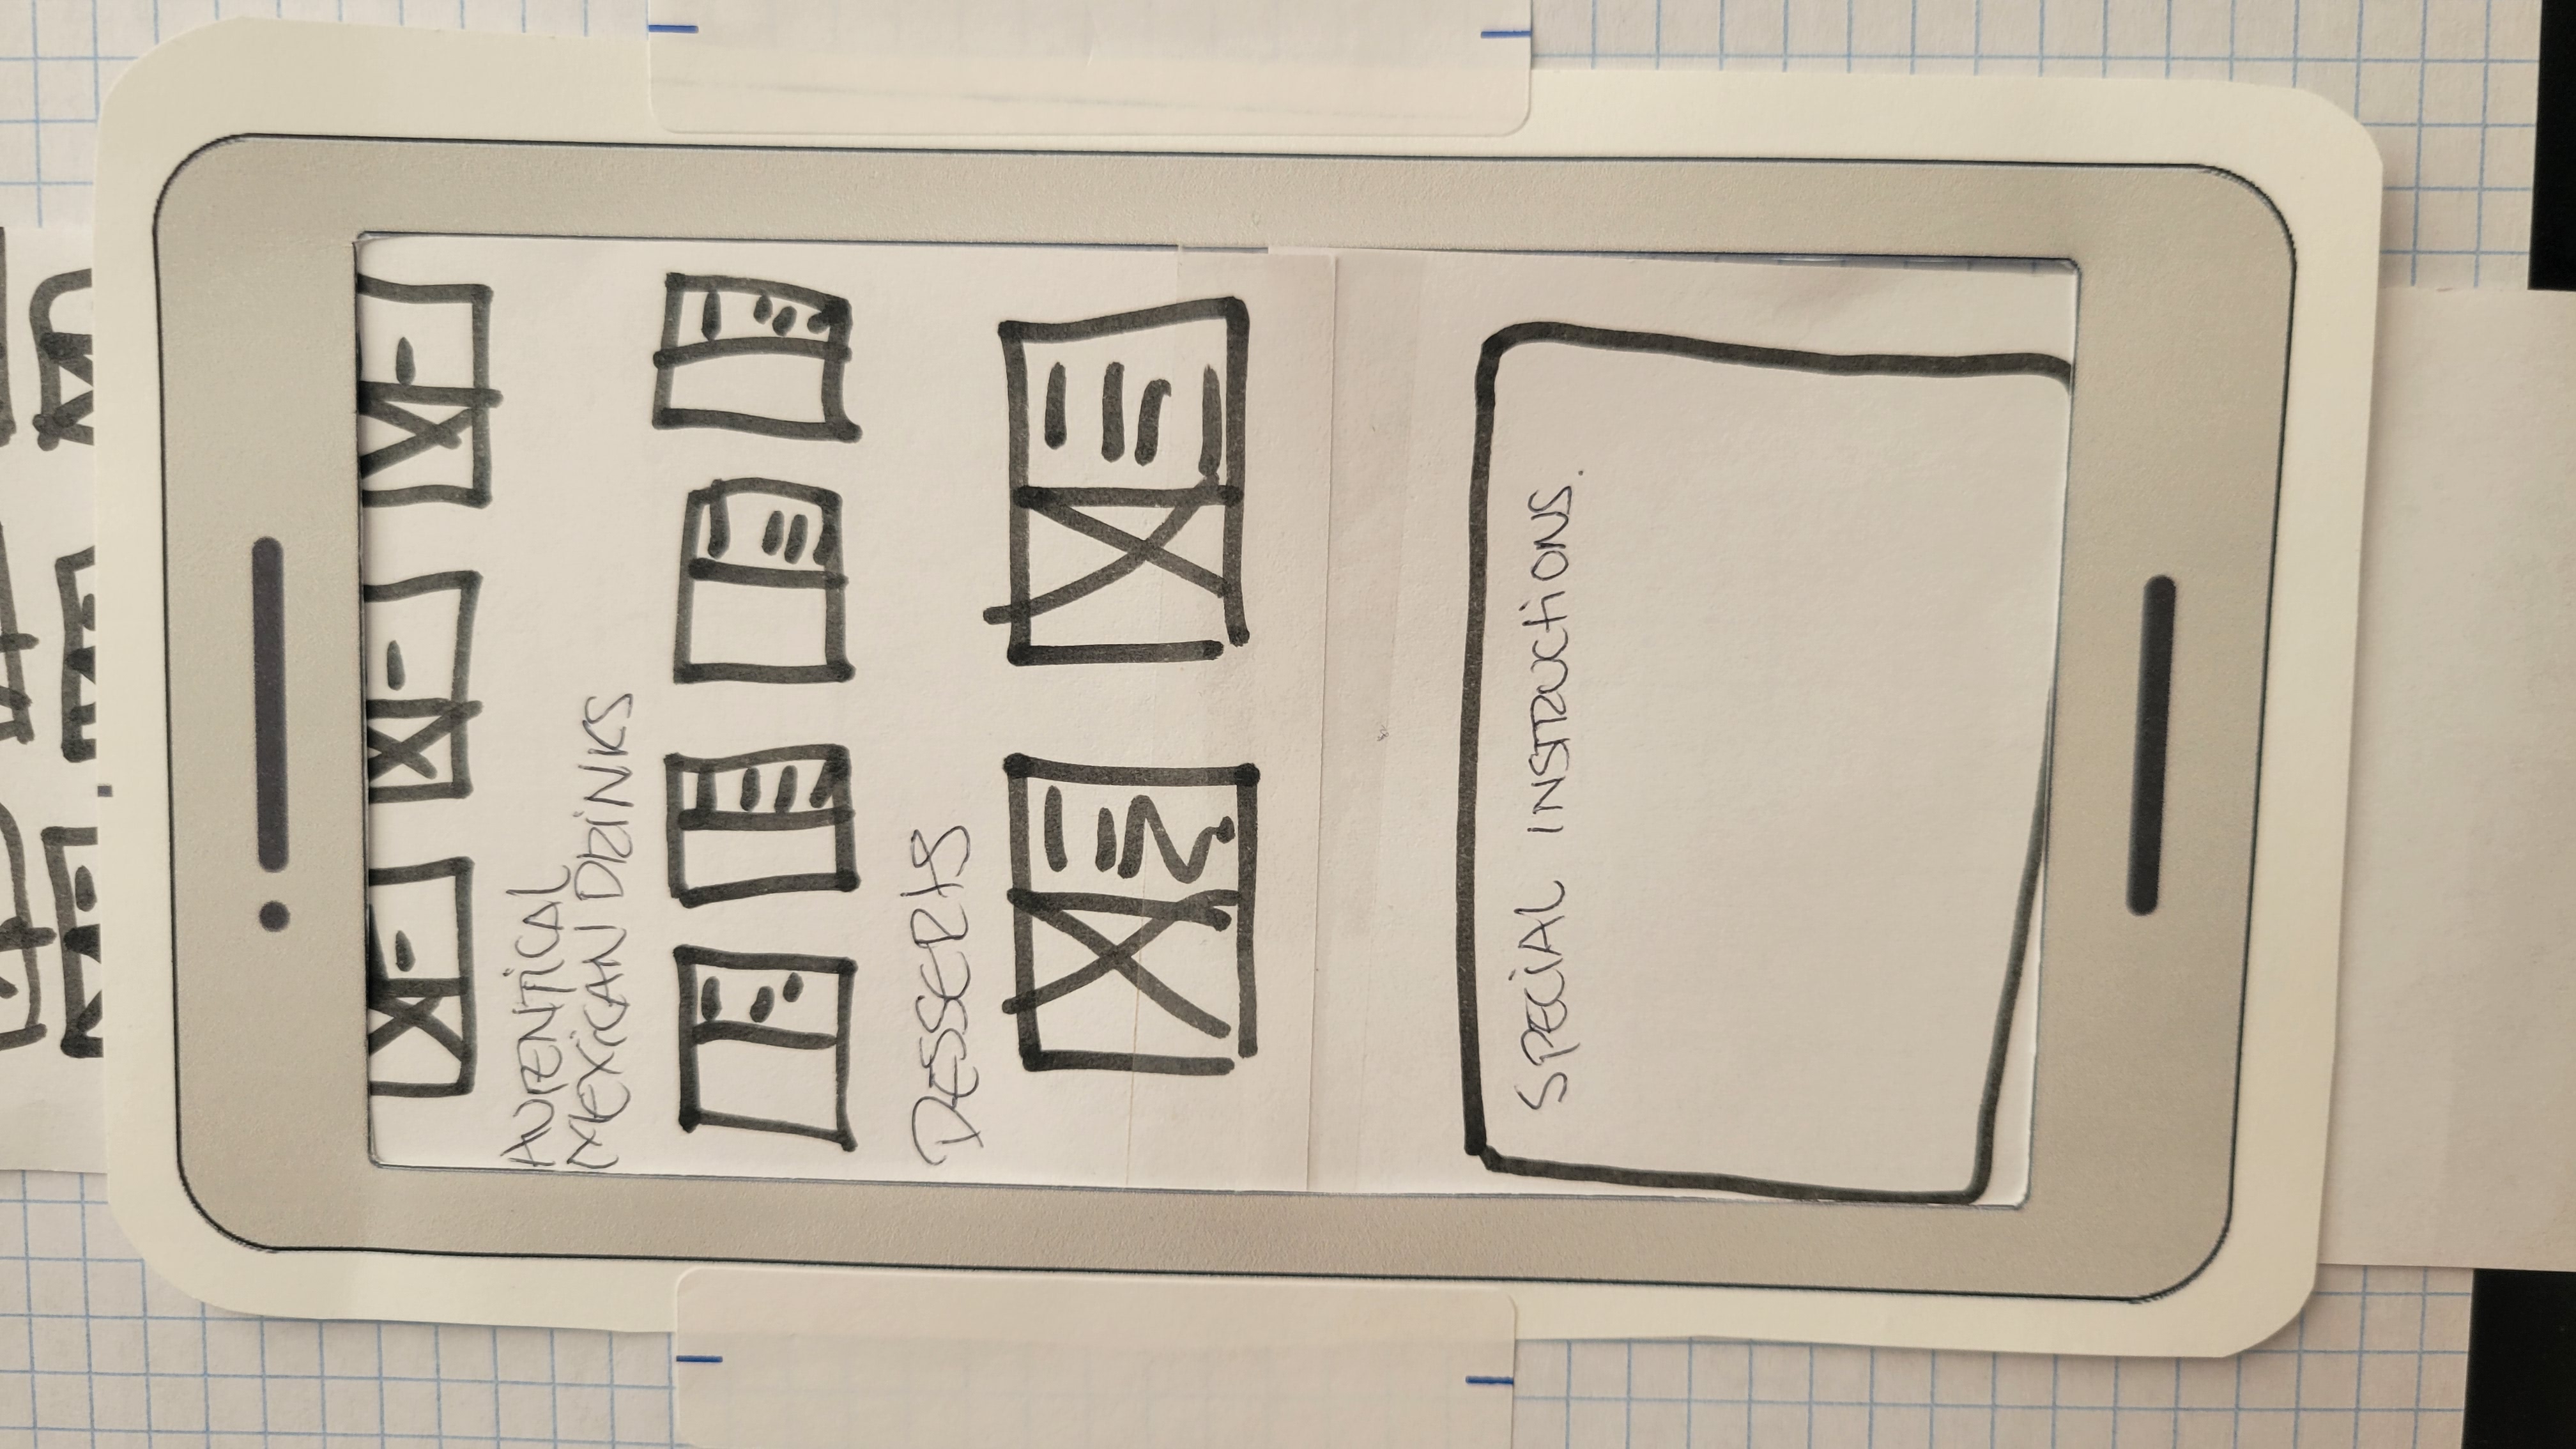 AUTENTICAL
MEXICAN DRINKS
DESSERTS
SPECIAL INSTRUCTIONS.